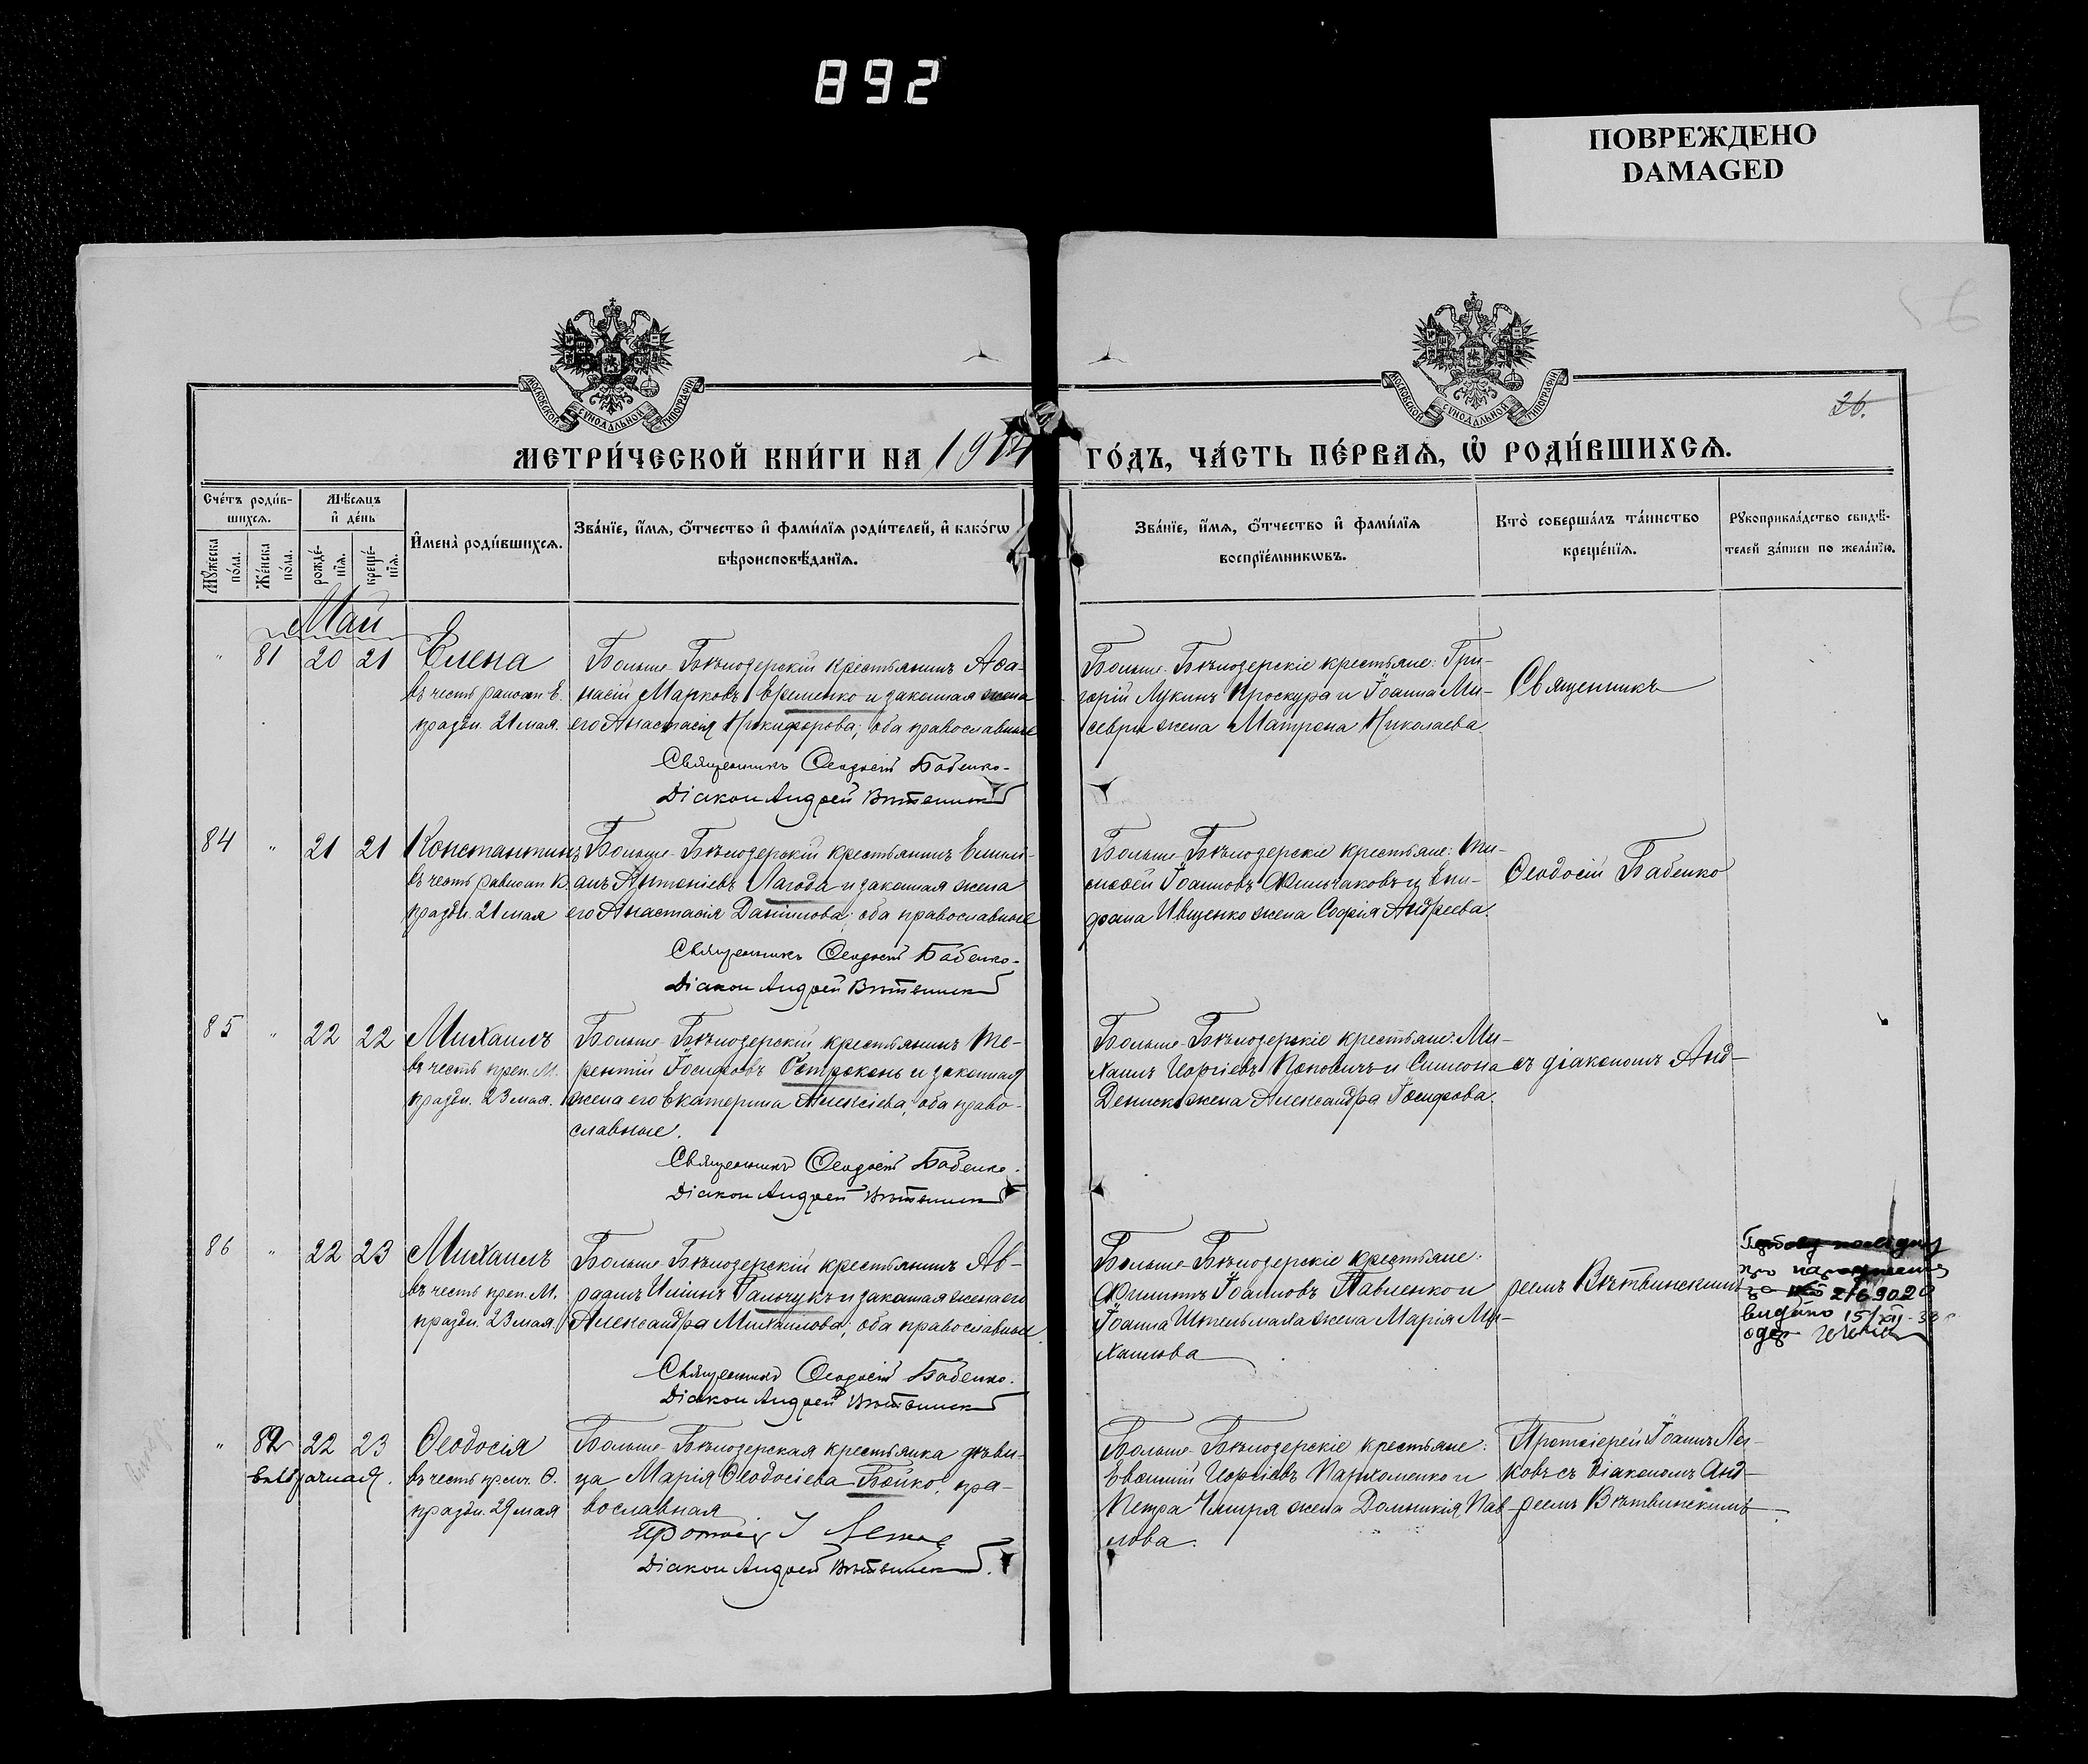 892
ПОВРЕЖДЕНО
DAMAGED
МОСКОВСКОЙ СѴНОДАЛЬНОЙ ТИПОГРАФІИ
МОСКОВСКОЙ СѴНОДАЛЬНОЙ ТИПОГРАФІИ
26.
МЕТРИ́ЧЕСКОЙ КНИ́ГИ НА 1914 ГО́ДЪ, ЧА́СТЬ ПЕ́РВАѦ, Ѡ҆ РОДИ́ВШИХСѦ.
Сче́тъ роди́в-
шихсѧ.
Мꙋ́жеска по́ла.
Же́нска по́ла.
Мѣ́сѧцъ
и҆ де́нь
рожде́-
нїѧ.
креще́-
нїѧ.
И҆мена̀ роди́вшихсѧ.
Зва́нїе, и҆́мѧ, ѻ҆́тчество и҆ фами́лїѧ роди́телей, и҆ како́гѡ
вѣроисповѣ́данїѧ.
Зва́нїе, и҆́мѧ, ѻ҆́тчество и҆ фами́лїѧ
воспрїе́мникѡвъ.
Кто̀ соверша́лъ та́инство
креще́нїѧ.
Рꙋкоприкла́дство свидѣ́-
телей за́писи по жела́нїю.
Май
" 81 20 21 Елена
въ честь равноап. Е.
праздн. 21 мая.
Больше-Бѣлозерскій крестьянинъ Аѳа-
насій Марковъ Еременко и законная жена
его Анастасія Никифорова; оба православные
Священникъ Ѳеодосій Бабенко
Діаконъ Андрей Вѣтвинскій
Больше-Бѣлозерскіе крестьяне: Гри-
горій Лукинъ Проскура и Іоанна Ми-
севры жена Матрона Николаева
Священникъ
84 " 21 21 Константинъ
въ честь равноап. К.
праздн. 21 мая
Больше-Бѣлозерскій крестьянинъ Емили-
анъ Антоніевъ Лагода и законная жена
его Анастасія Даніилова; оба православные
Священникъ Ѳеодосій Бабенко
Діаконъ Андрей Вѣтвинскій
Больше-Бѣлозерскіе крестьяне: Ти-
моѳей Іоанновъ Фильчаковъ и Епи-
фана Ивщенко жена Софія Андреева.
Ѳеодосій Бабенко
85 " 22 22 Михаилъ
въ честь преп. М.
праздн. 23 мая.
Больше-Бѣлозерскій крестьянинъ Те-
рентій Іосифовъ Остроконь и законная
жена его Екатерина Алексіева; оба право-
славные.
Священникъ Ѳеодосій Бабенко.
Діаконъ Андрей Вѣтвинскій
Больше-Бѣлозерскіе крестьяне: Ми-
хаилъ Георгіевъ Поповичъ и Симеона
Дениски жена Александра Іосифова.
съ діакономъ Анд-
86 " 22 23 Михаилъ
въ честь преп. М.
праздн. 23 мая.
Больше-Бѣлозерскій крестьянинъ Ав-
раамъ Иліинъ Гальчукъ и законная жена его
Александра Михаилова; оба православные.
Священникъ Ѳеодосій Бабенко.
Діаконъ Андрей Вѣтвинскій
Больше-Бѣлозерскіе крестьяне:
Филиппъ Іоанновъ Павленко и
Іоанна Штельмаха жена Марія Ми-
хаилова
реемъ Вѣтвинскимъ
про народження
за № 276902
видано 15/XII-38
" 82 22 23 Ѳеодосія
внебрачная.
въ честь прмч. Ѳ.
праздн. 29 мая
Больше-Бѣлозерская крестьянка дѣви-
ца Марія Ѳеодосіева Бойко, пра-
вославная
Протоіер І Лечков
Діаконъ Андрей Вѣтвинскій.
Больше-Бѣлозерскіе крестьяне:
Евѳимій Георгіевъ Пархоменко и
Петра Чмиря жена Домникія Пав-
лова.
Протоіерей Іоаннъ Леч-
ковъ съ діакономъ Анд-
реемъ Вѣтвинскимъ.